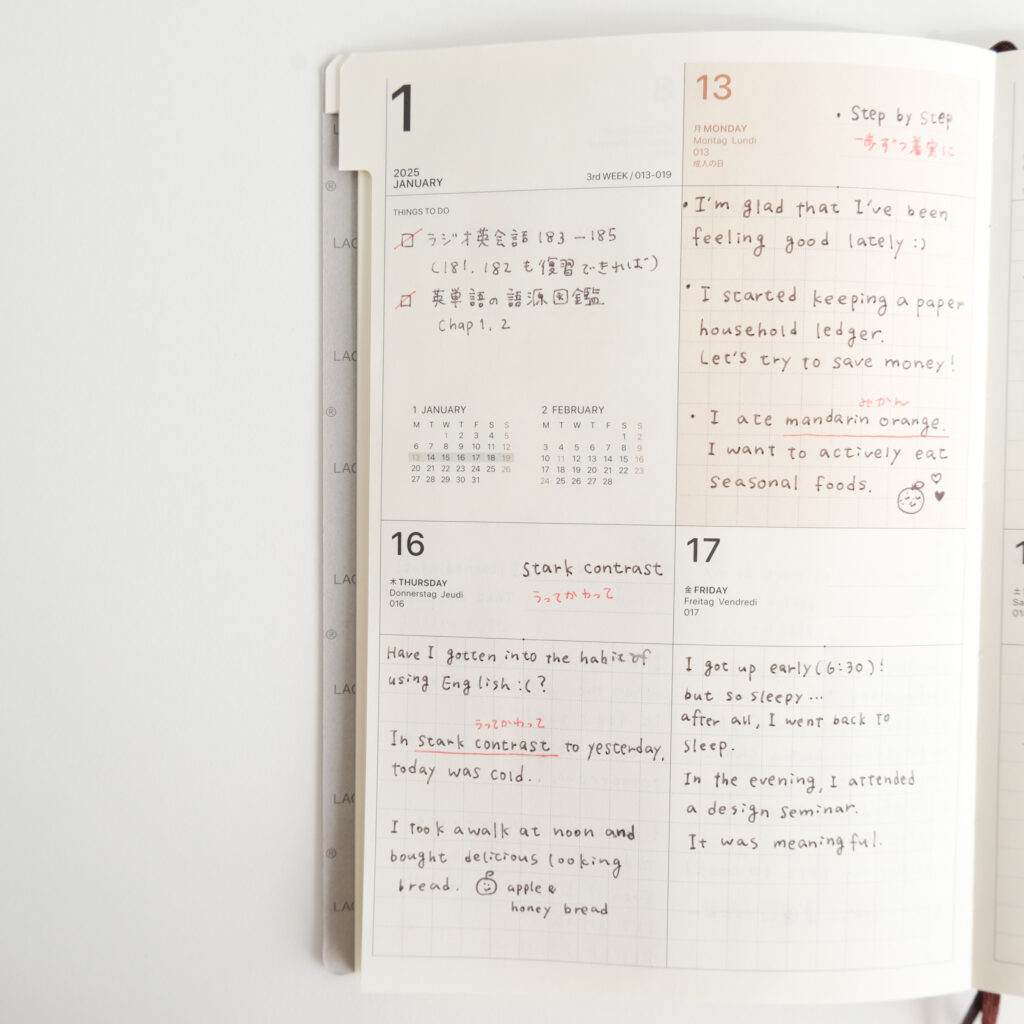 1
2025
JANUARY
3rd WEEK / 013-019
THINGS TO DO
ラジオ英会話 183 - 185
(181, 182 も復習できれば)
英単語の語源図鑑
Chap 1, 2
1 JANUARY
M T W T F S S
1 2 3 4 5
6 7 8 9 10 11 12
13 14 15 16 17 18 19
20 21 22 23 24 25 26
27 28 29 30 31
2 FEBRUARY
M T W T F S S
1 2
3 4 5 6 7 8 9
10 11 12 13 14 15 16
17 18 19 20 21 22 23
24 25 26 27 28
13
月 MONDAY
Montag Lundi
013
成人の日
• Step by Step
一歩ずつ着実に
• I'm glad that I've been
feeling good lately :)
• I started keeping a paper
household ledger.
Let's try to save money!
みかん
• I ate mandarin orange.
I want to actively eat
seasonal foods.
16
木 THURSDAY
Donnerstag Jeudi
016
Stark contrast
うってかわって
Have I gotten into the habit of
using English :(?
うってかわって
In stark contrast to yesterday,
today was cold..
I took a walk at noon and
bought delicious looking
bread. apple &
honey bread
17
金 FRIDAY
Freitag Vendredi
017
I got up early (6:30)!
but so sleepy...
after all, I went back to
sleep.
In the evening, I attended
a design seminar.
It was meaningful.